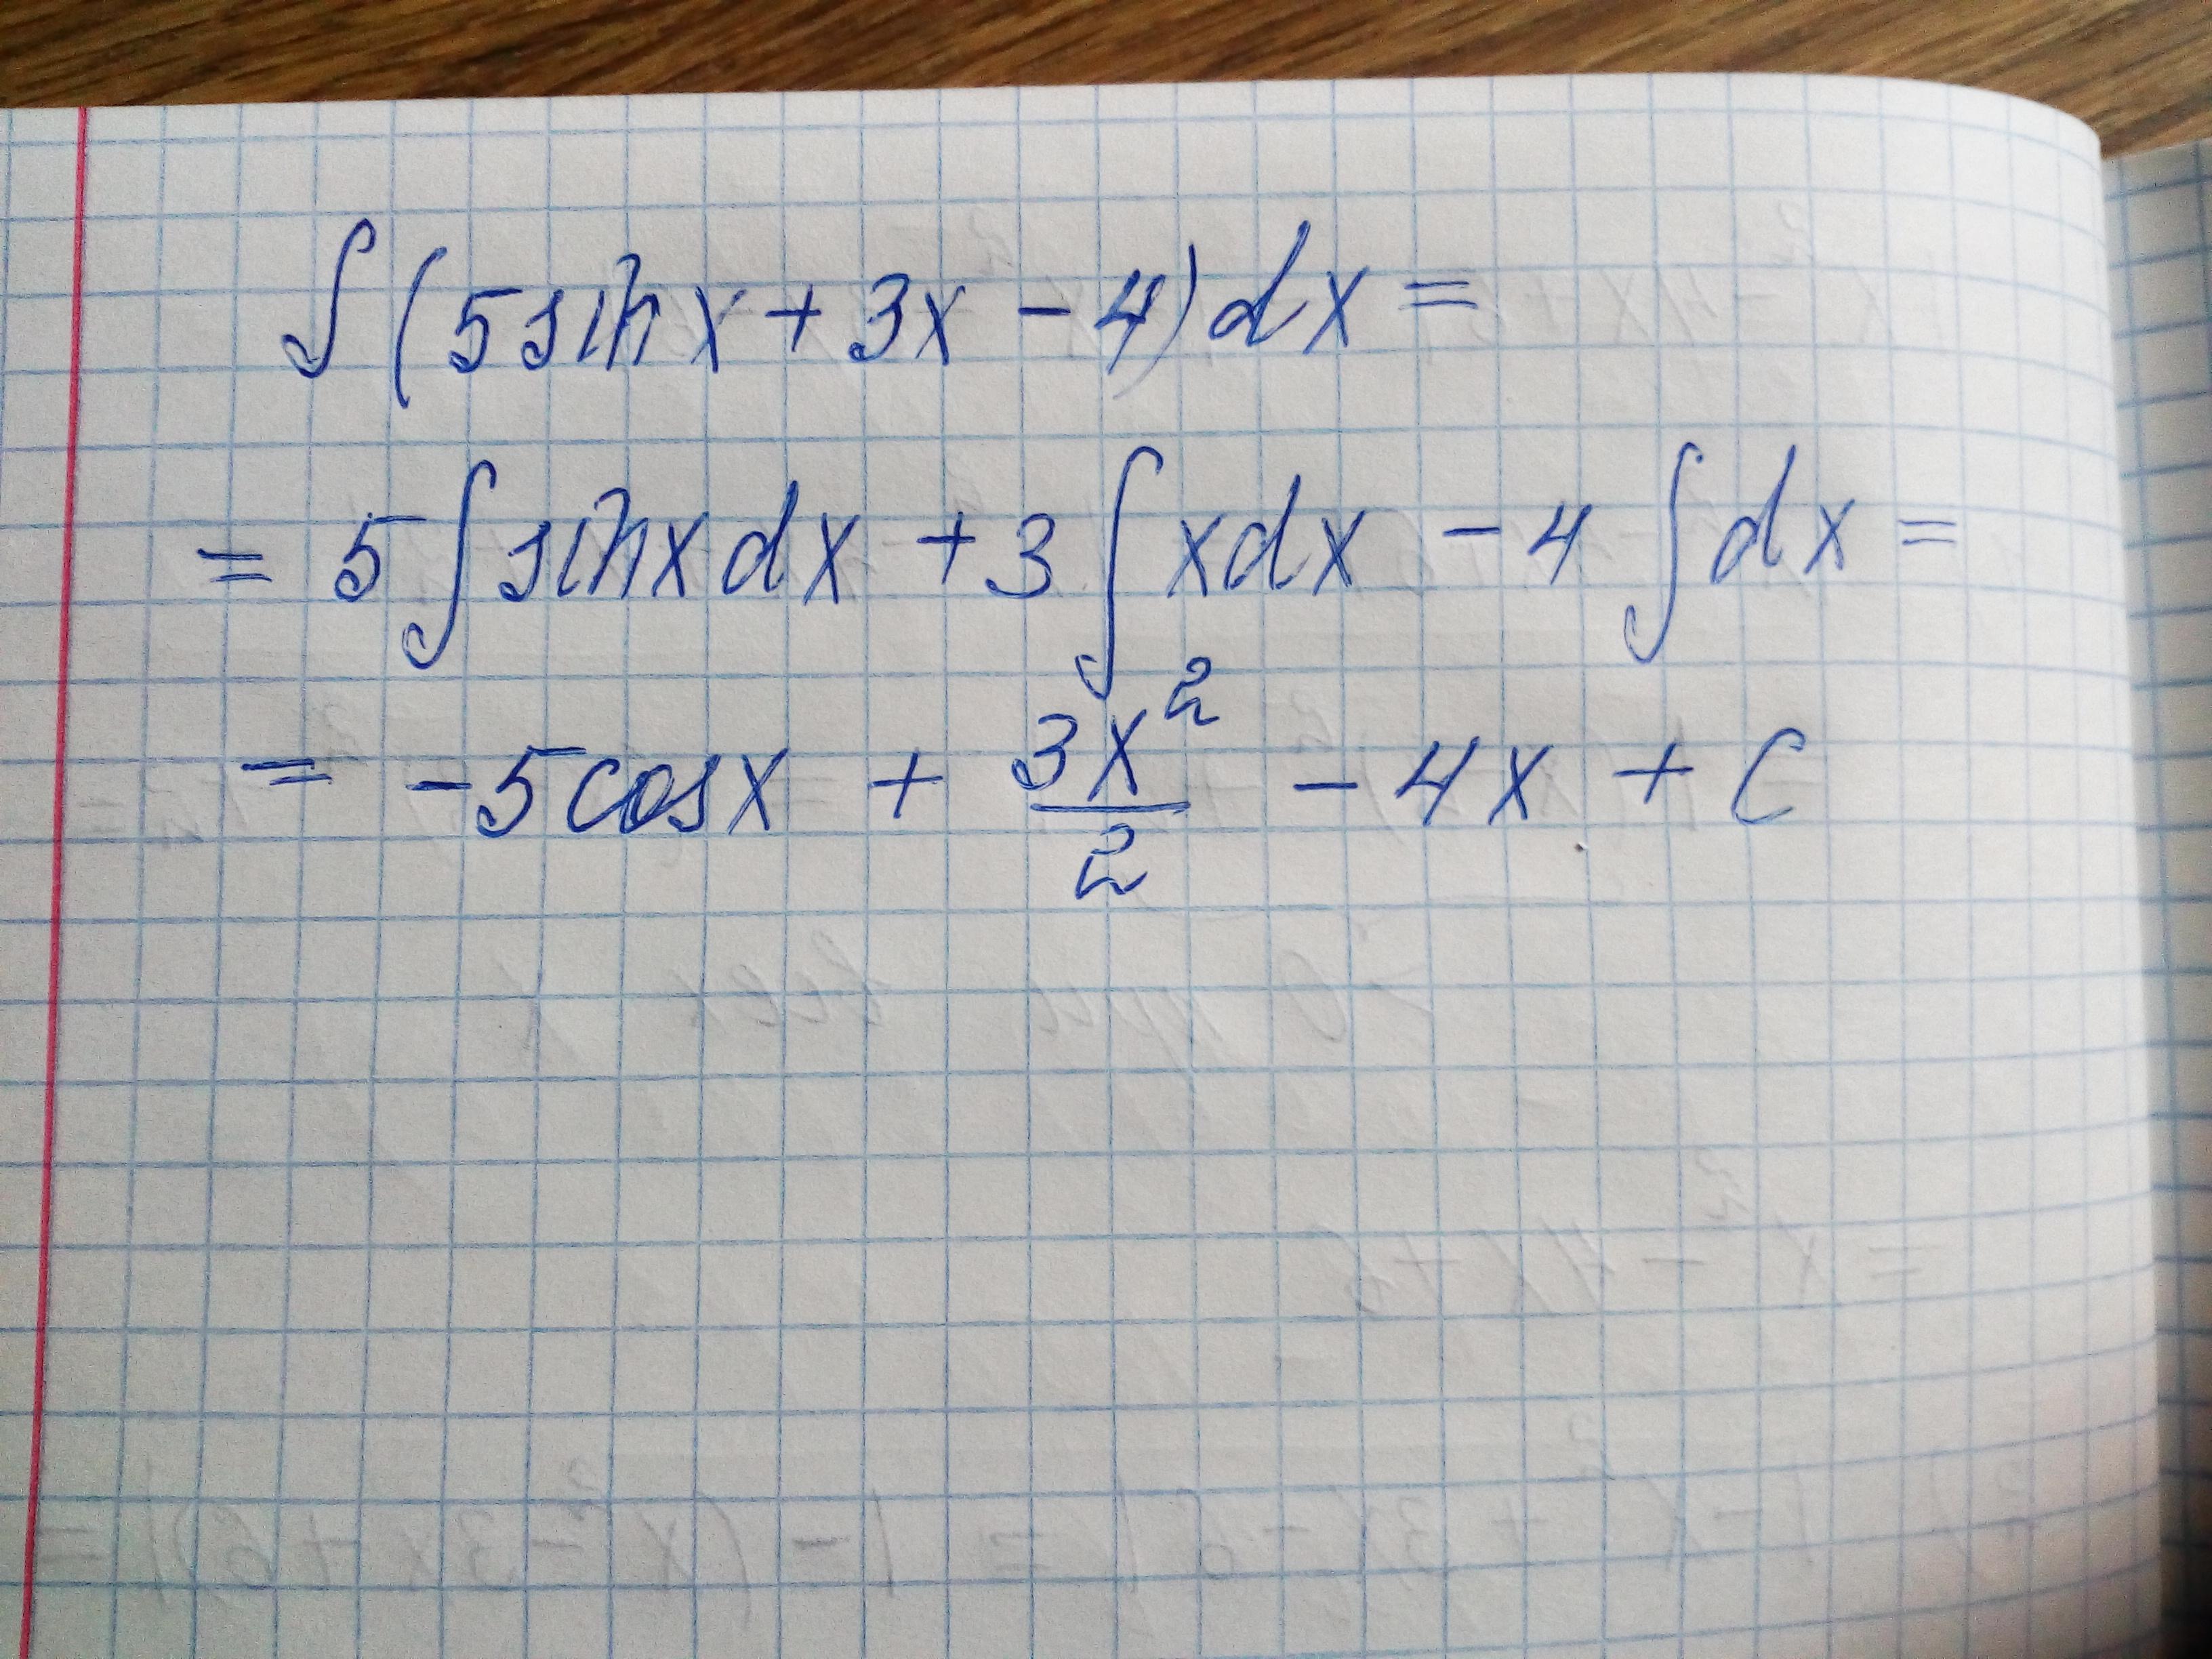 ∫(5sinx+3x-4)dx=
=5∫sinxdx+3∫xdx-4∫dx=
=-5cosx+3x²/2-4x+C